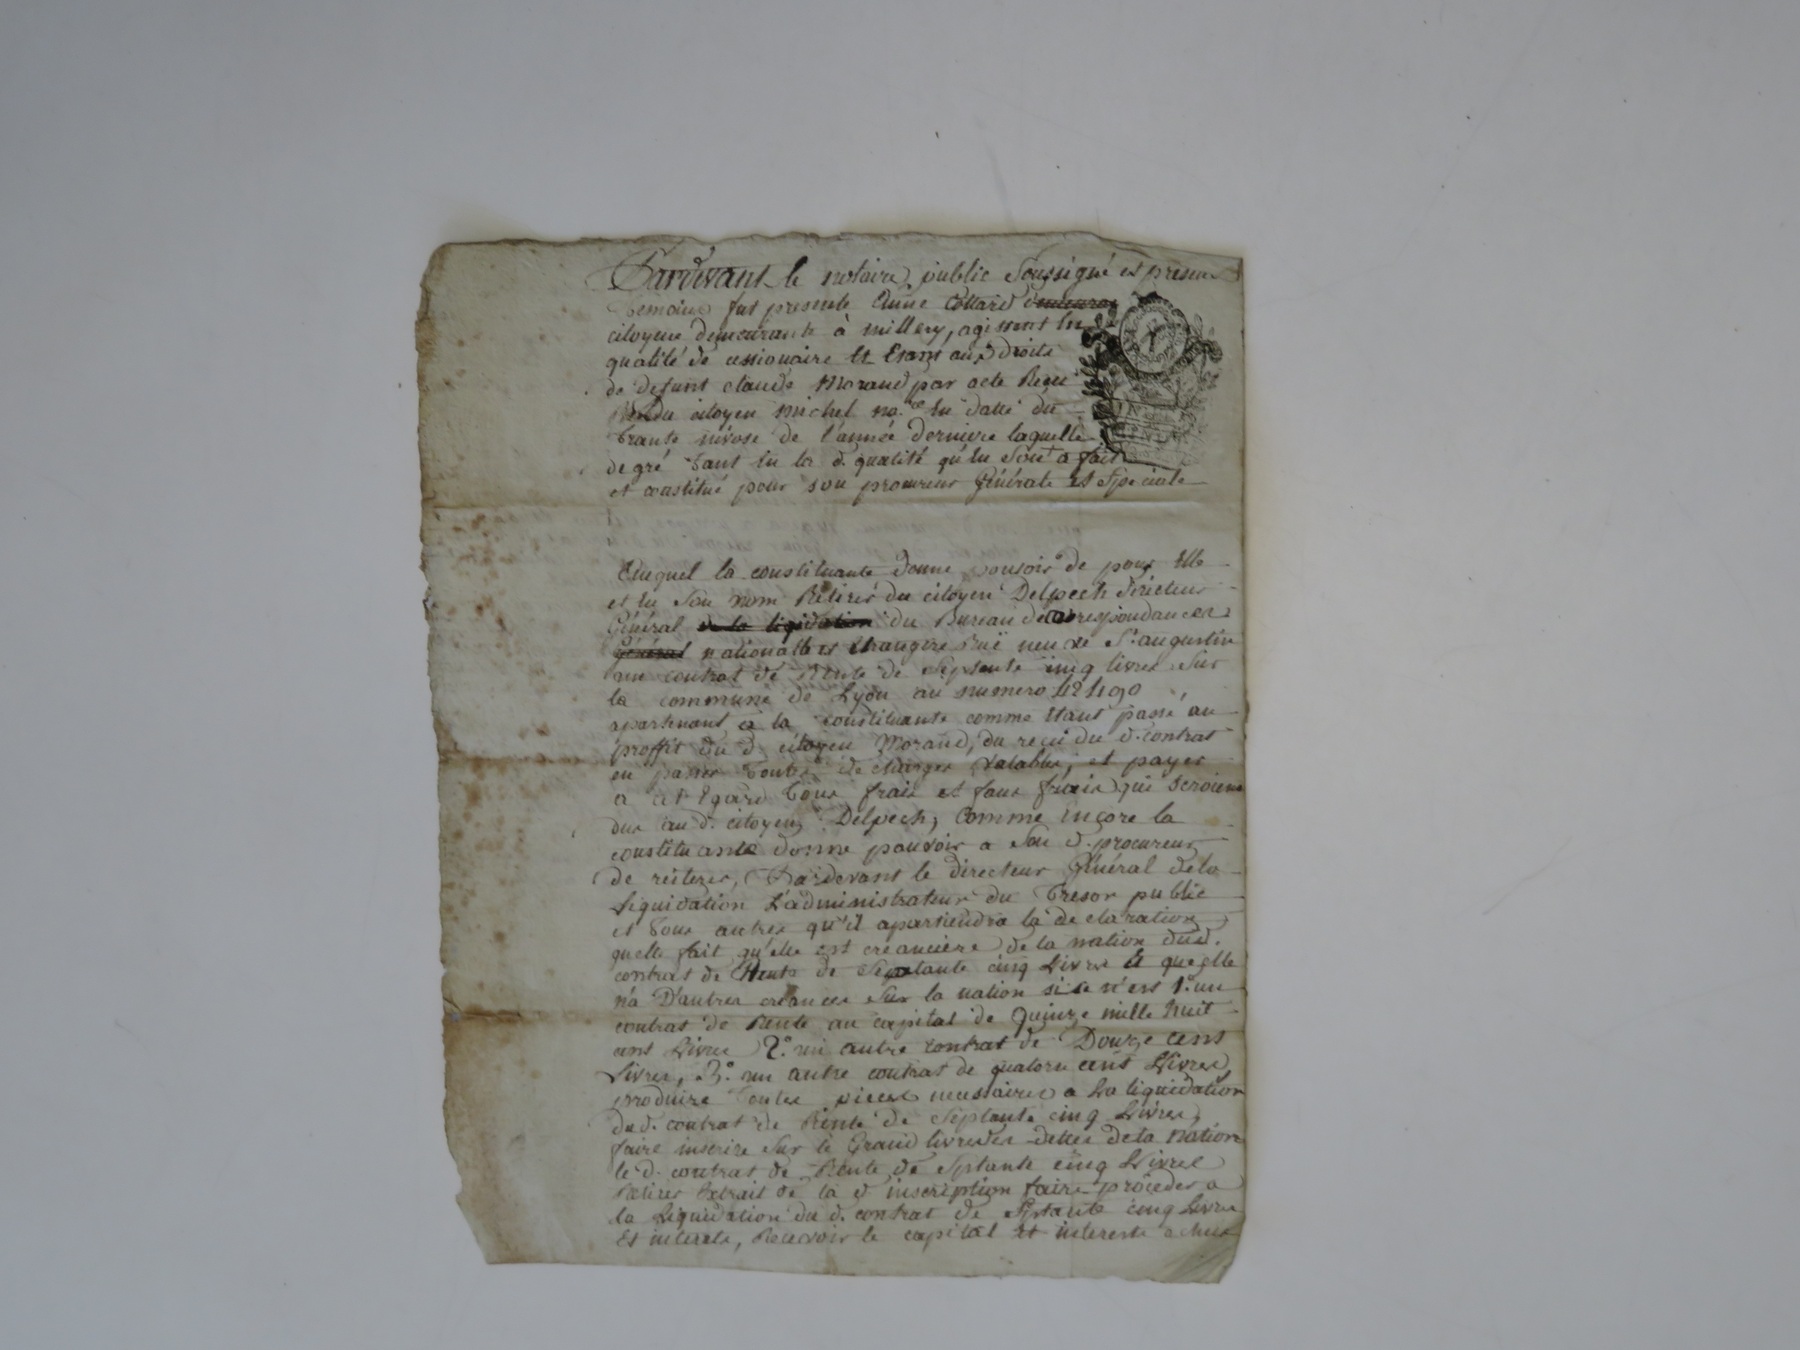 Pardevant le notaire public Soussigné et presens
Temoins fut presente Anne Cottard demeuran
citoyene demeurante à millery, agissent En
qualité de cessionaire Et Etant aux droits
de defunt claude Morand par acte Reçu
du citoyen Michel no.re En datte du
trante nivose de l'année derniere laquelle
de gré tant En la d. qualité qu'En Son a fait
et constitué pour son procureur Général et Speciale
Auquel la constituante donne pouvoir de pour Elle
et En Son nom Retirer du citoyen Delpech Directeur
Général de la liquidation du Bureau de Correspondances
Général nationalle et Etrangere Ruë neuve St augustin
un contrat de Rente de Septente cinq livres Sur
la commune de Lyon au numero 42490
apartenant a la constituante comme Etant passé au
proffit du d. citoyen Morand, du reçu du d. contrat
en passer toutes decharges valables, et payer
a cet Egard tous frais et faux fraix qui seroient
dus au d. citoyen Delpech, Comme encore la
constituante donne pouvoir a Son d. procureur
de reiterer, Pardevant le directeur Général de la
Liquidation L'administrateur du Tresor public
et tous autres qu'il apartiendra la declaration
quelle fait qu'elle est créanciere de la nation dud.
contrat de Rente de Septante cinq Livres Et quelle
n'a D'autres créances Sur la nation si ce n'est 1.° un
contrat de Rente au capital de Quinze mille huit
cent Livres 2.° un autre contrat de Douze cent
Livres, 3.° un autre contrat de quatorze cent Livres,
produire toutes pieces necessaires a La liquidation
du d. contrat de Rente de Septante cinq Livres,
faire inscrire Sur le Grand livre des dettes de la Nation
le d. contrat de Rente de Septante cinq Livres
Retirer Extrait de la d inscription faire proceder a
la Liquidation du d. contrat de Septante cinq Livres
Et interets, Recevoir le capital Et interests Echus